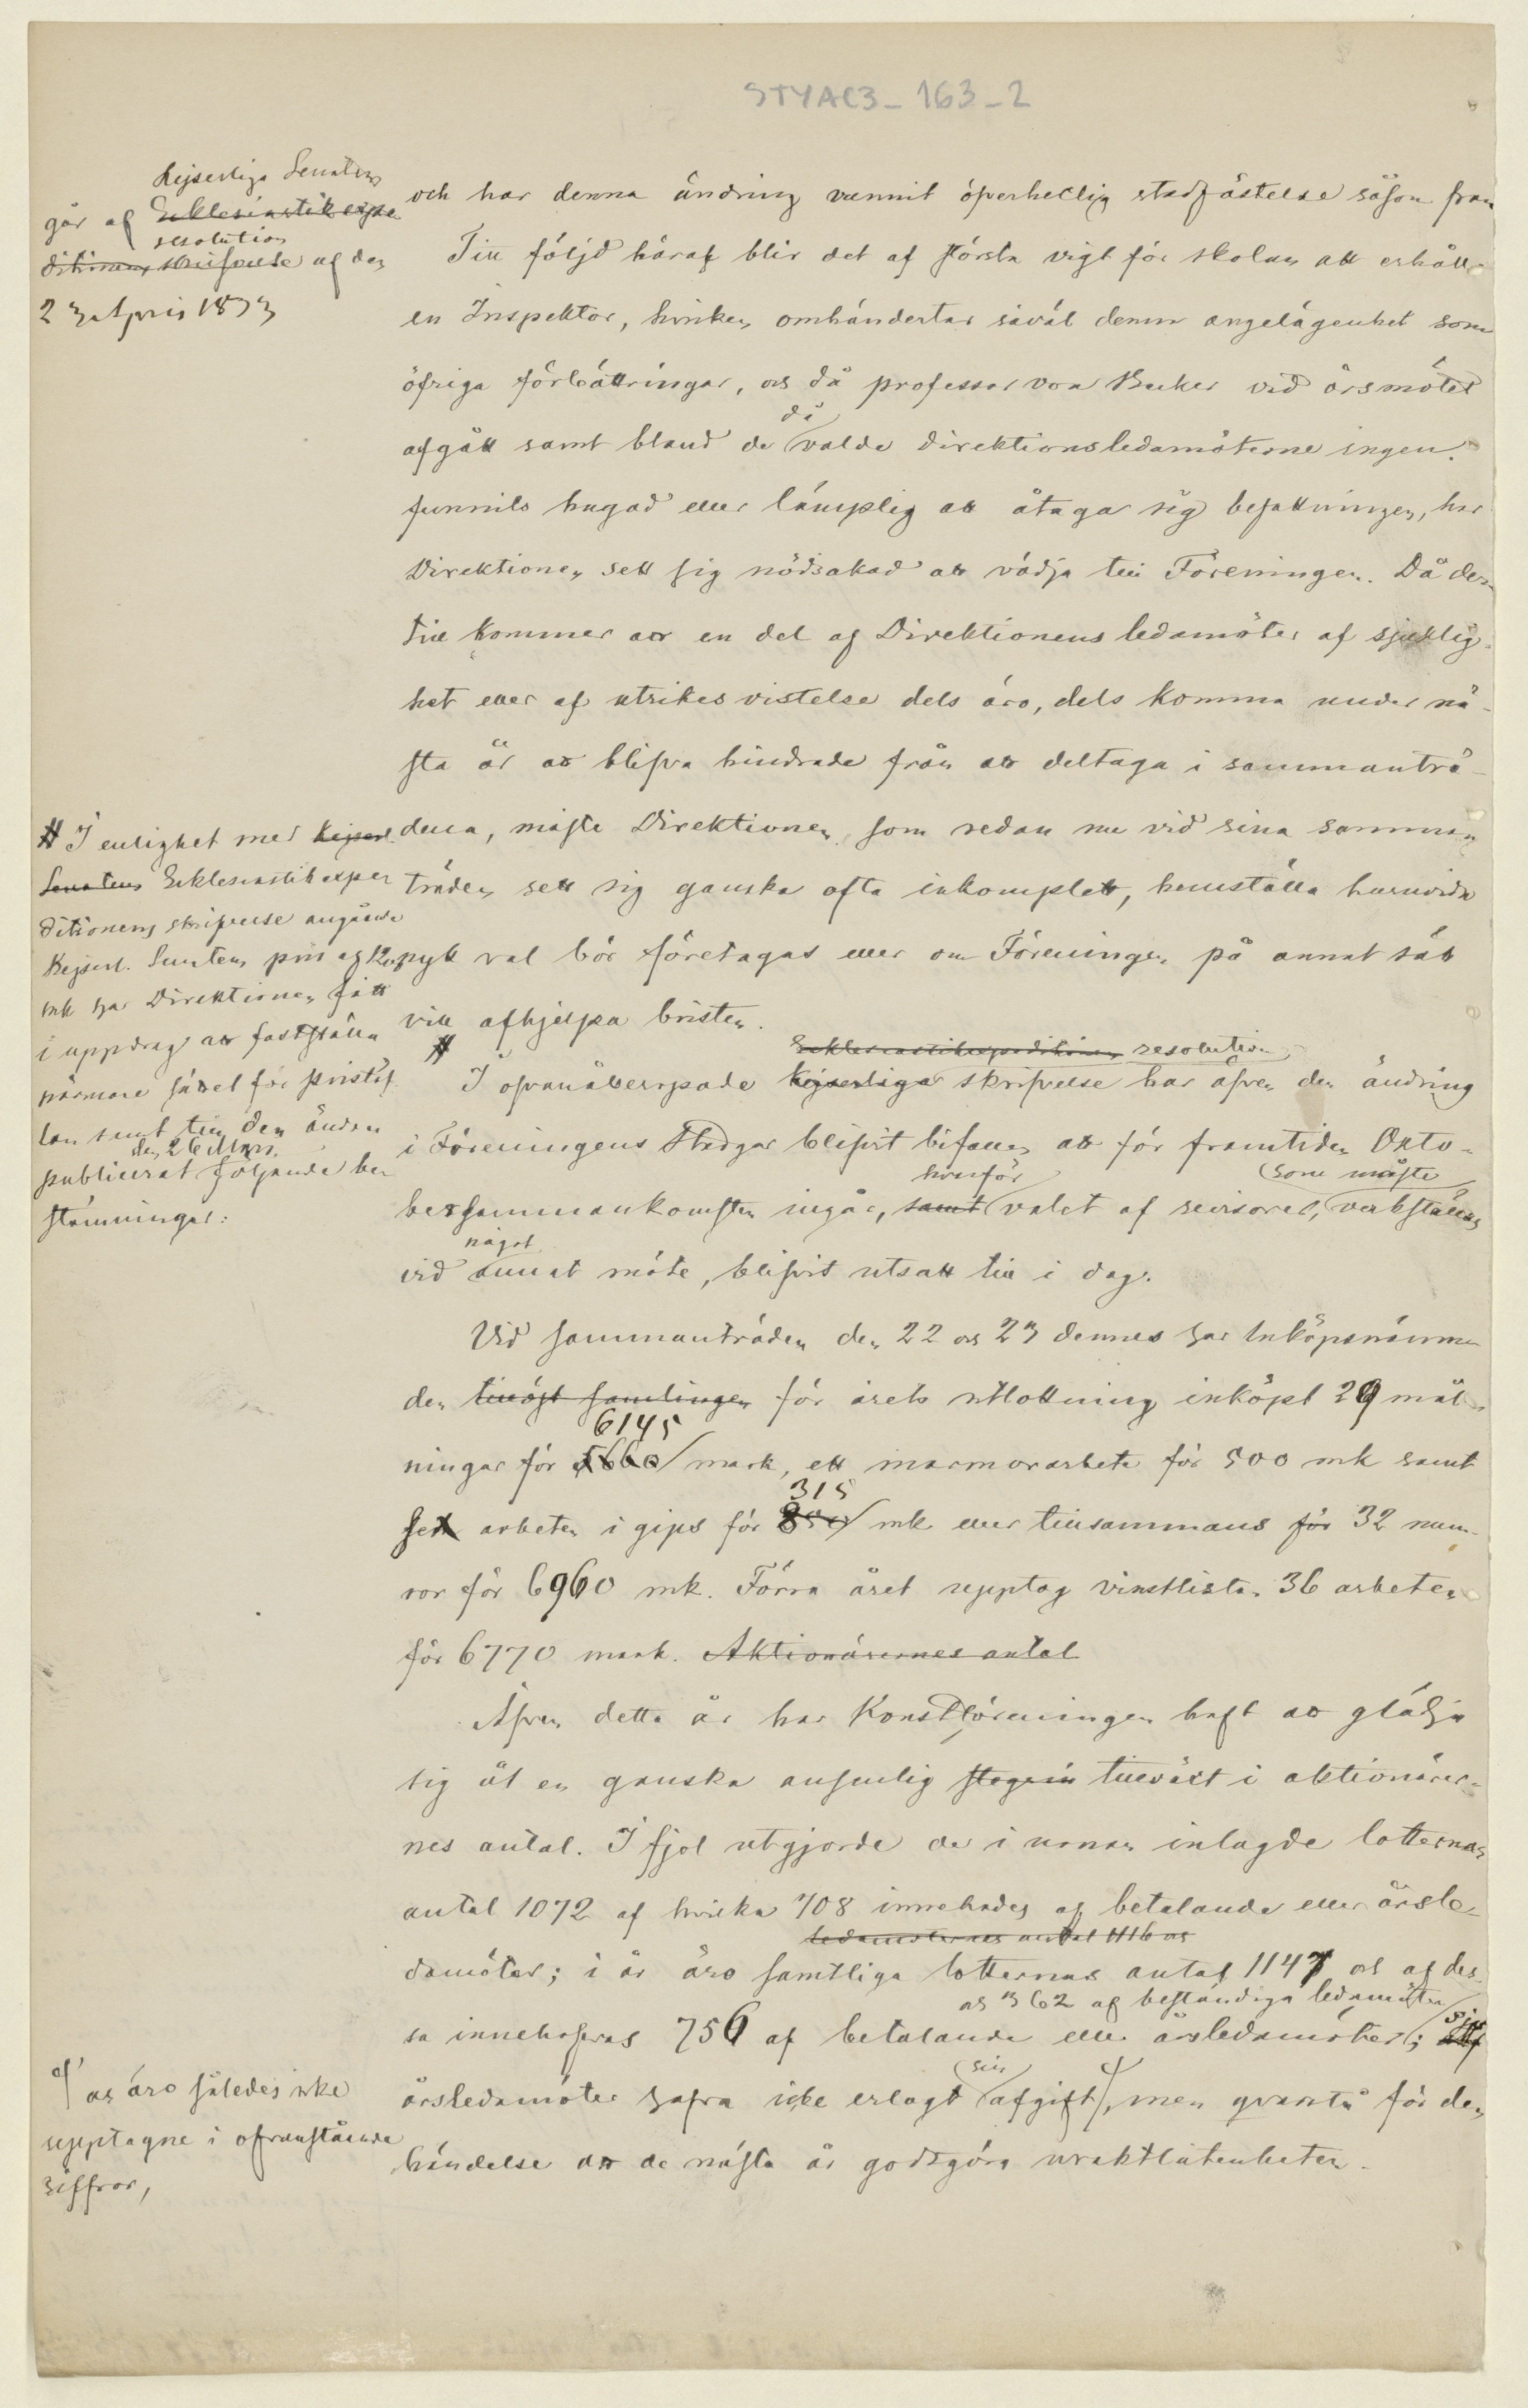 STYAC3_163_2
Kejserliga Senatens
går af Ecklesiastikexpe
resolution
ditionens skrifvelse af den
23 April 1873
och har denna ändring vunnit öfverhetlig stadfästelse såsom fram
Till följd häraf blir det af största vigt för skolan att erhålla
en Inspektor, hvilken omhändertar såväl denna angelägenhet som
öfriga förbättringar, och då professor von Becker vid årsmötet
då
afgått samt bland de valde direktionsledamöterne ingen
funnits hugad eller lämplig att åtaga sig befattningen, har
Direktionen sett sig nödsakad att vädja till Föreningen. Då der
till kommer att en del af Direktionens ledamöter af sjuklig-
het eller af utrikes vistelse dels äro, dels komma under nä-
sta år att blifva hindrade från att deltaga i sammanträ-
dena, måste Direktionen, som redan nu vid sina samman
träden sett sig ganska ofta inkomplett, hemställa huruvida
nytt val bör företagas eller om Föreningen på annat sätt
vill afhjelpa bristen.
# I enlighet med Kejserl.
Senatens Ecklesiastikexpe
ditionens skrifvelse angående
Kejserl. Senatens pris af
mk har Direktionen fått
i uppdrag att fastställa
närmare sättet för pristäf
lan samt till den ändan
den 26 Mars
publicerat följande be
stämningar:
#
Ecklesiastikexpeditionens resolution
I ofvanåberopade Kejserliga skrifvelse har äfven den ändring
i Föreningens Stadgar blifvit bifallen att för framtiden Okto-
hvarför som måste
bersammankomsten ingår, samt valet af revisorer, verkställas
något
vid annat möte, blifvit utsatt till i dag.
Vid sammanträden den 22 och 23 dennes har Inköpsnämn
den tillöst samlingen för årets utlottning inköpt 29 mål
6145
ningar för 5660 mark, ett marmorarbete för 500 mk samt
315
sex arbeten i gips för 850 mk eller tillsammans för 32 num-
ror för 6960 mk. Förra året upptog vinstlistan 36 arbeten
för 6770 mark. Aktionärernes antal
Äfven detta år har Konstföreningen haft att glädja
sig åt en ganska ansenlig stegrin tillväxt i aktionärer-
nes antal. I fjol utgjorde de i urnan inlagde lotternas
antal 1072 af hvilka 708 innehades af betalande eller årsle-
ledamöternes antal 1116 och
damöter; i år äro samtliga lotternas antal 1147 och af des-
och 362 af beständiga ledamöter
sa innehafvas 756 af betalande eller årsledamöter;
sin
årsledamöter hafva icke erlagt afgift, men qvarstå för den
händelse att de nästa år godtgöra uraktlåtenheten.
och äro således icke
upptagne i ofvanstående
siffror,